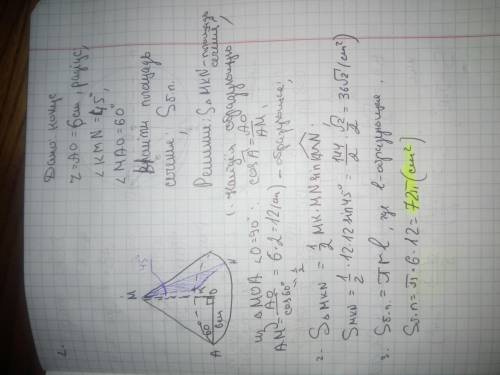 2.
Дано: конус
r=AO=6см, радиус,
∠KMN=45°,
∠MAO=60°
Найти площадь
сечения, Sб.п.
Решение: S△MKN - площадь
сечения,
1. Найдем образующую,
из △MOA ∠O=90°: cosA = AO/AM,
AM = AO/cos60° = 6·2 = 12(см) - образующая,
2. S△MKN = 1/2 MK·MN sin∠KMN.
SMKN = 1/2 · 12·12 sin45° = 144/2 · √2/2 = 36√2 (см²)
3. Sб.п = πrl, где l-образующая,
Sб.п = π·6·12 = 72π(см²)
M
45°
K
N
O
60°
6см
A